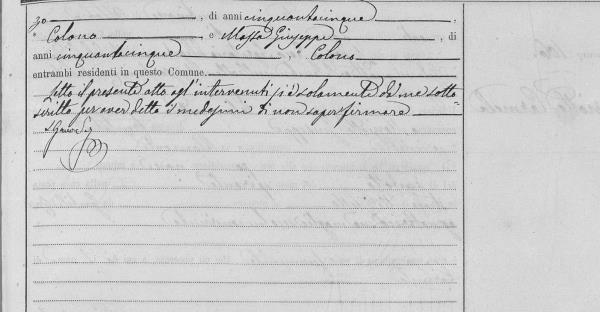 zo, di anni cinquantacinque,
Colono, e Massa Giuseppe, di
anni cinquantacinque, Colono
entrambi residenti in questo Comune.
letto il presente atto agl'intervenuti si è solamente da me sotto-
scritto per aver detto i medesimi di non saper firmare